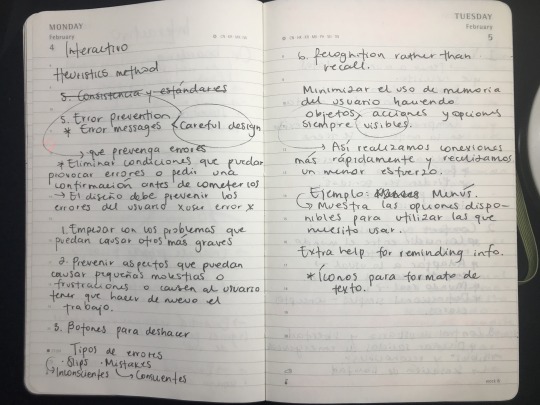 MONDAY
February
4
Interactivo
Heuristics method
5. Consistencia y estándares
5. Error prevention
* Error messages < Careful design
→ que prevenga errores
* Eliminar condiciones que puedan
provocar errores o pedir una
confirmación antes de cometerlos
→ El diseño debe prevenir los
errores del usuario x user error x
1. Empezar con los problemas que
puedan causar otros más graves
2. Prevenir aspectos que puedan
causar pequeñas molestias o
frustraciones o causen al usuario
tener que hacer de nuevo el
trabajo.
3. Botones para deshacer
Tipos de errores
· Slips · Mistakes
→ Inconscientes → Conscientes
TUESDAY
February
5
6. Recognition rather than
recall.
Minimizar el uso de memoria
del usuario haciendo
objetos, acciones y opciones
siempre visibles.
→ Así realizamos conexiones
más rápidamente y realizamos
un menor esfuerzo.
Ejemplo: Menús.
→ Muestra las opciones dispo-
nibles para utilizar las que
necesito usar.
Extra help for reminding info.
* Íconos para formato de
texto.